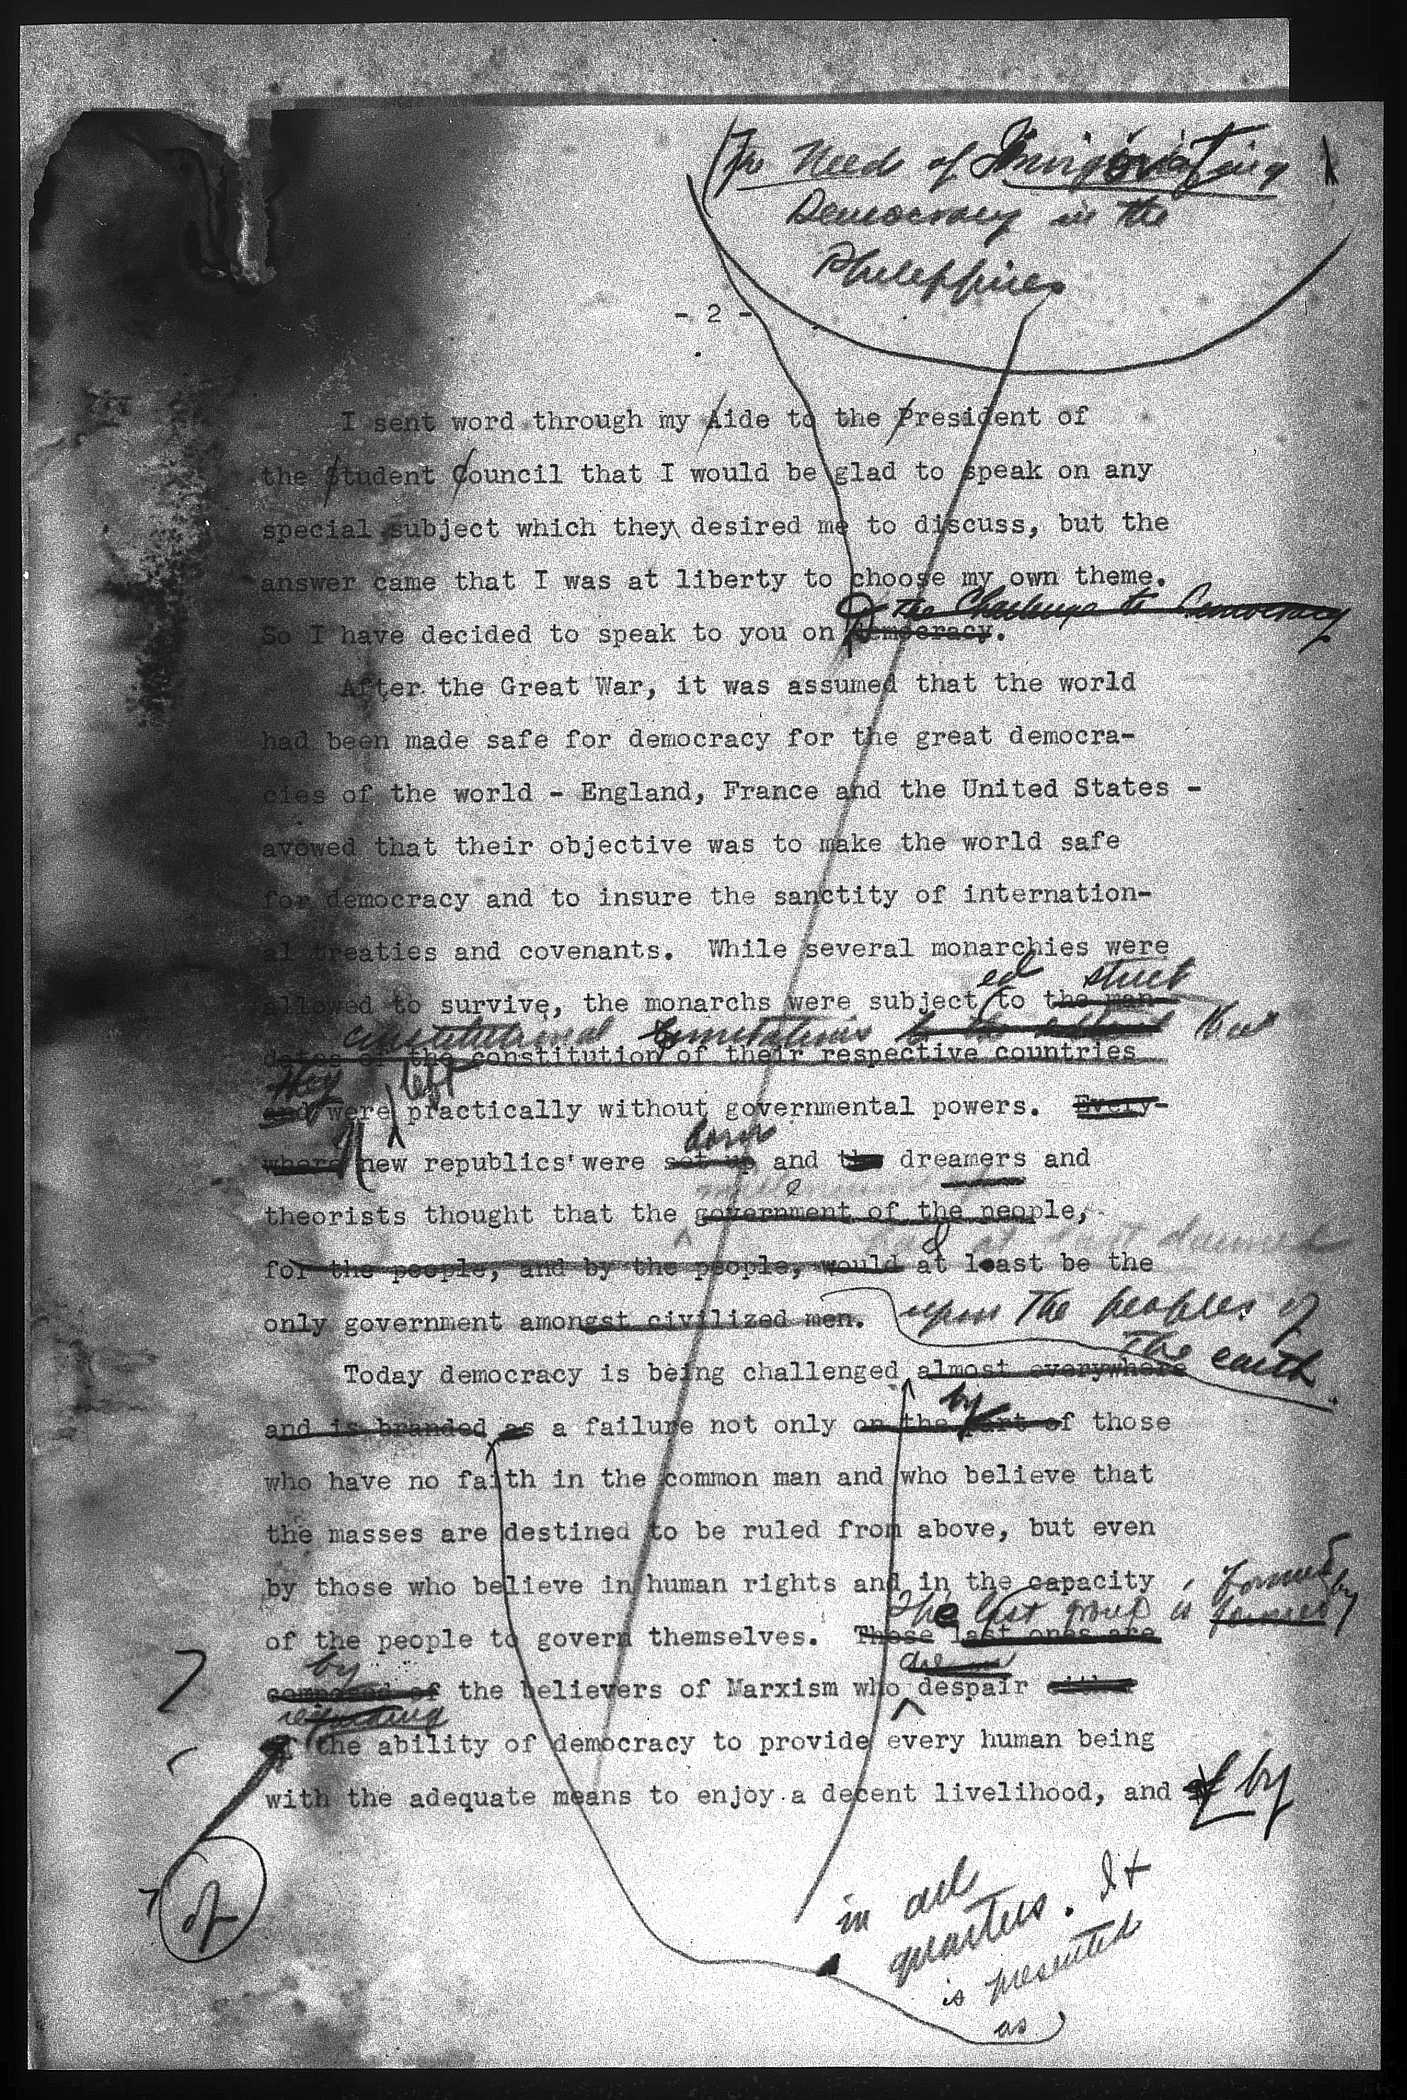 The Need of Invigorating
Democracy in the
Philippines
- 2 -
I sent word through my Aide to the President of
the Student Council that I would be glad to speak on any
special subject which they desired me to discuss, but the
answer came that I was at liberty to choose my own theme.
The Challenge to Democracy
So I have decided to speak to you on Democracy.
After the Great War, it was assumed that the world
had been made safe for democracy for the great democra-
cies of the world - England, France and the United States -
avowed that their objective was to make the world safe
for democracy and to insure the sanctity of internation-
al treaties and covenants. While several monarchies were
ed strict
allowed to survive, the monarchs were subject to the man-
constitutional limitations
dates of the constitution of their respective countries
They left
and were practically without governmental powers. Every-
born
where new republics were set up and the dreamers and
theorists thought that the government of the people,
had at last dawned
for the people, and by the people, would at least be the
only government amongst civilized men. upon the peoples of
the earth
Today democracy is being challenged almost everywhere
by
and is branded as a failure not only on the part of those
who have no faith in the common man and who believe that
the masses are destined to be ruled from above, but even
by those who believe in human rights and in the capacity
The last group is formed by
of the people to govern themselves. These last ones are
by
composed of the believers of Marxism who despair either
regarding
of the ability of democracy to provide every human being
with the adequate means to enjoy a decent livelihood, and of by
of
in all
quarters. It
is presented
as